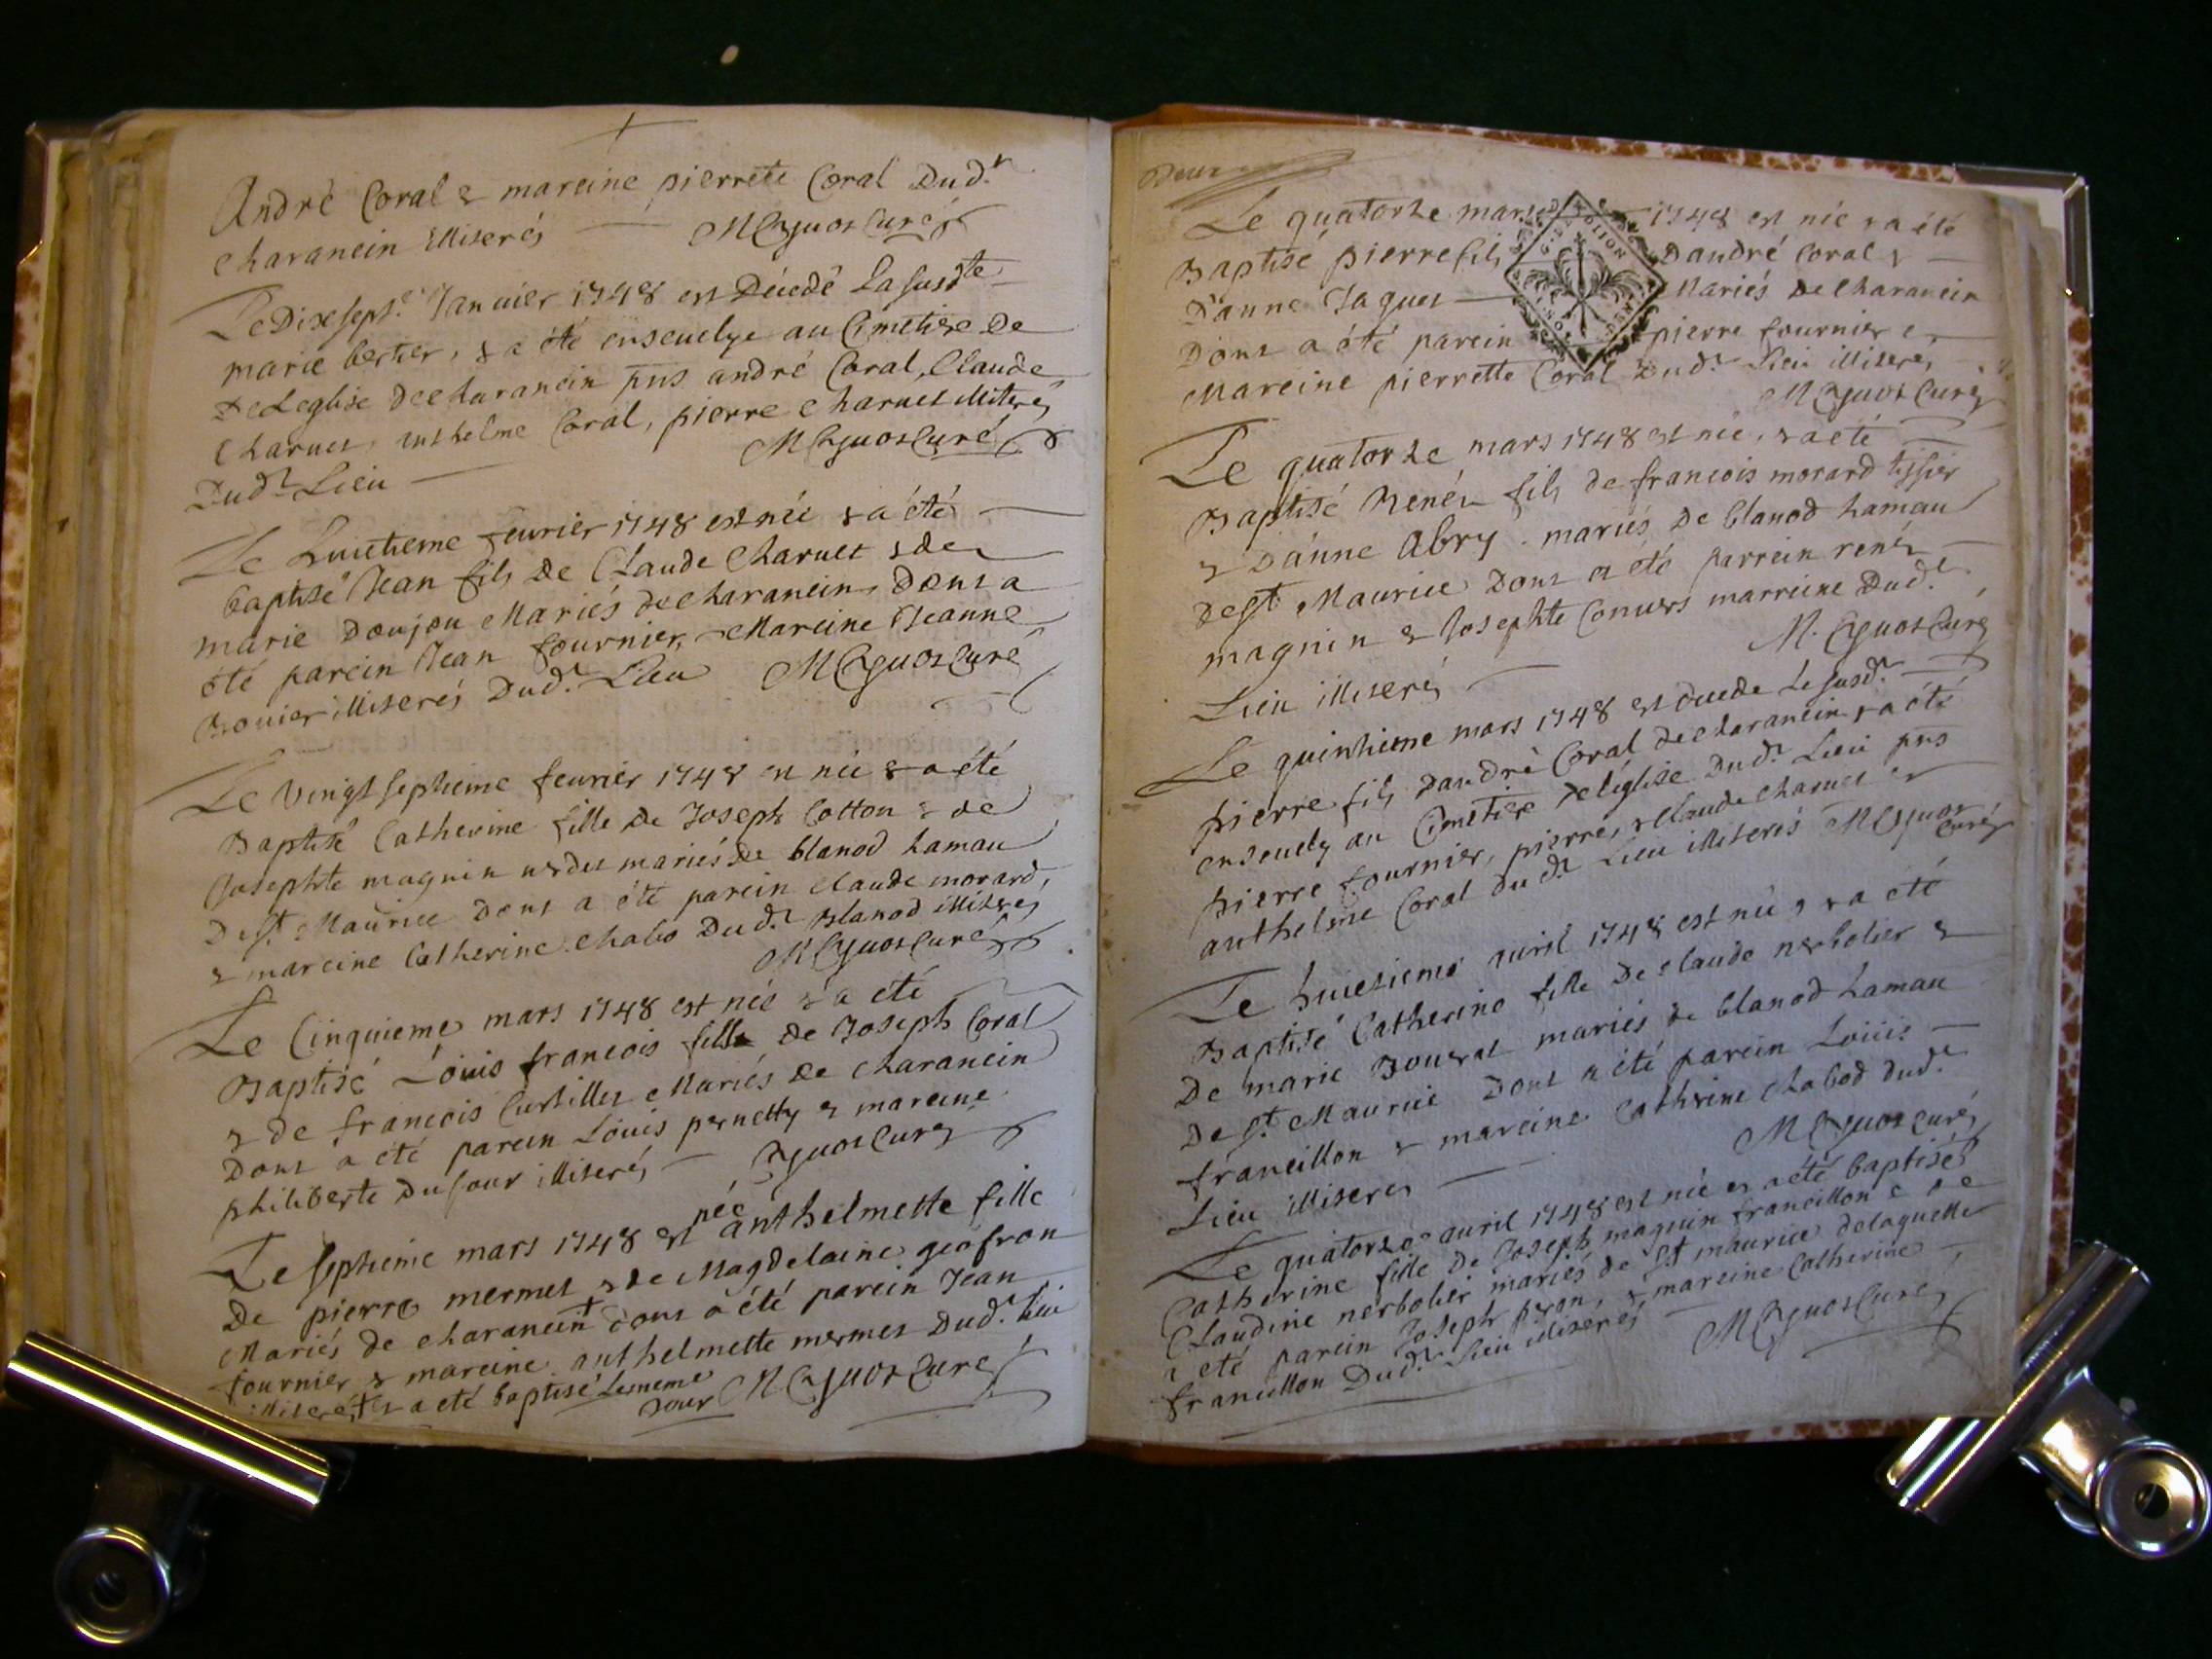 André Coral & mareine pierrete Coral Dud.t
Charancin illiserés MCyuoz Curé
Le Dixsept.e Janvier 1748 est Décedé La susd.te
marie bertier, & a été ensevelye au Cimetiere De
De Leglise de charancin pns andré Coral, Claude
Charvet, anthelme Coral, pierre Charvet illiteres
Dud.t Lieu MCyuoz Curé
Le huictieme fevrier 1748 est née & a été
baptisé Jean fils de Claude Charvet & de
marie Doujou Mariés de charancin, Dont a
été parein Jean fournier, Mareine Jeanne
Bovier illiserés Dud.t Lieu MCyuoz Curé
Le Vingt septieme fevrier 1748 est née & a été
Baptisé Catherine fille de Joseph Cotton & de
Josephte magnin mariés De blanod hamau
De St. Maurice Dont a été parein claude morard,
& mareine Catherine Chabo Dud.t Blanod illiteres
MCyuoz Curé
Le Cinquieme mars 1748 est née & a été
Baptisé Loüis francois fils de Joseph Coral
& de francois Curtillet Mariés de charancin
Dont a été parein Loüis pernetty & mareine
philiberte Dufour illiserés Cyuoz Curé
née
Le septieme mars 1748 est anthelmette fille
De pierre mermet & de Magdelaine geofron
Mariés de charancin + dont a été parein Jean
fournier & mareine anthelmette mermet Dud.t lieu
illiserés + & a été baptisé Lememe
Jour MCyuoz Curé
Deux
Le quatorze mars 1748 est née & a été
Baptisé pierre fils Dandré Coral &
D'anne Jaquet Mariés de charancin
Dont a été parein pierre fournier &
Mareine pierrette Coral Dud.t Lieu illiseres
MCyuoz Curé
G. DIJON
Le quatorze mars 1748 est née, & a été
Baptisé Renér fils de francois morard tissier
& D'anne Abry mariés De blanod hamau
De St. Maurice Dont a été parrein renér
magnin & Josephte Convers marreine Dud.t
Lieu illiserés M. Cyuoz Curé
Le quinzieme mars 1748 est decede Le susd.t
pierre fils Dandrè Coral de charancin, & a été
ensevely au Cimetiere de l'église Dud.t Lieu pns
pierre fournier, pierre, & Claude Charvet &
anthelme Coral dud.t Lieu illiserés MCyuoz
Curé
Le huiesieme avril 1748 est née, & a été
Baptisé Catherine fille De claude nerbolier &
De marie Bouvrat mariés de blanod hamau
De St. Maurice Dont a été parein Loüis
francillon & mareine Cathrine Chabod dud.t
Lieu illiseres MCyuoz Curé
Le quatorze avril 1748 est née & a été baptisé
Catherine fille De Joseph magnin francillon & de
Claudine nerbolier mariés de St maurice delaquelle
a été parein Joseph peron, & mareine Catherine
francillon Dud.t Lieu illiserés MCyuoz Curé